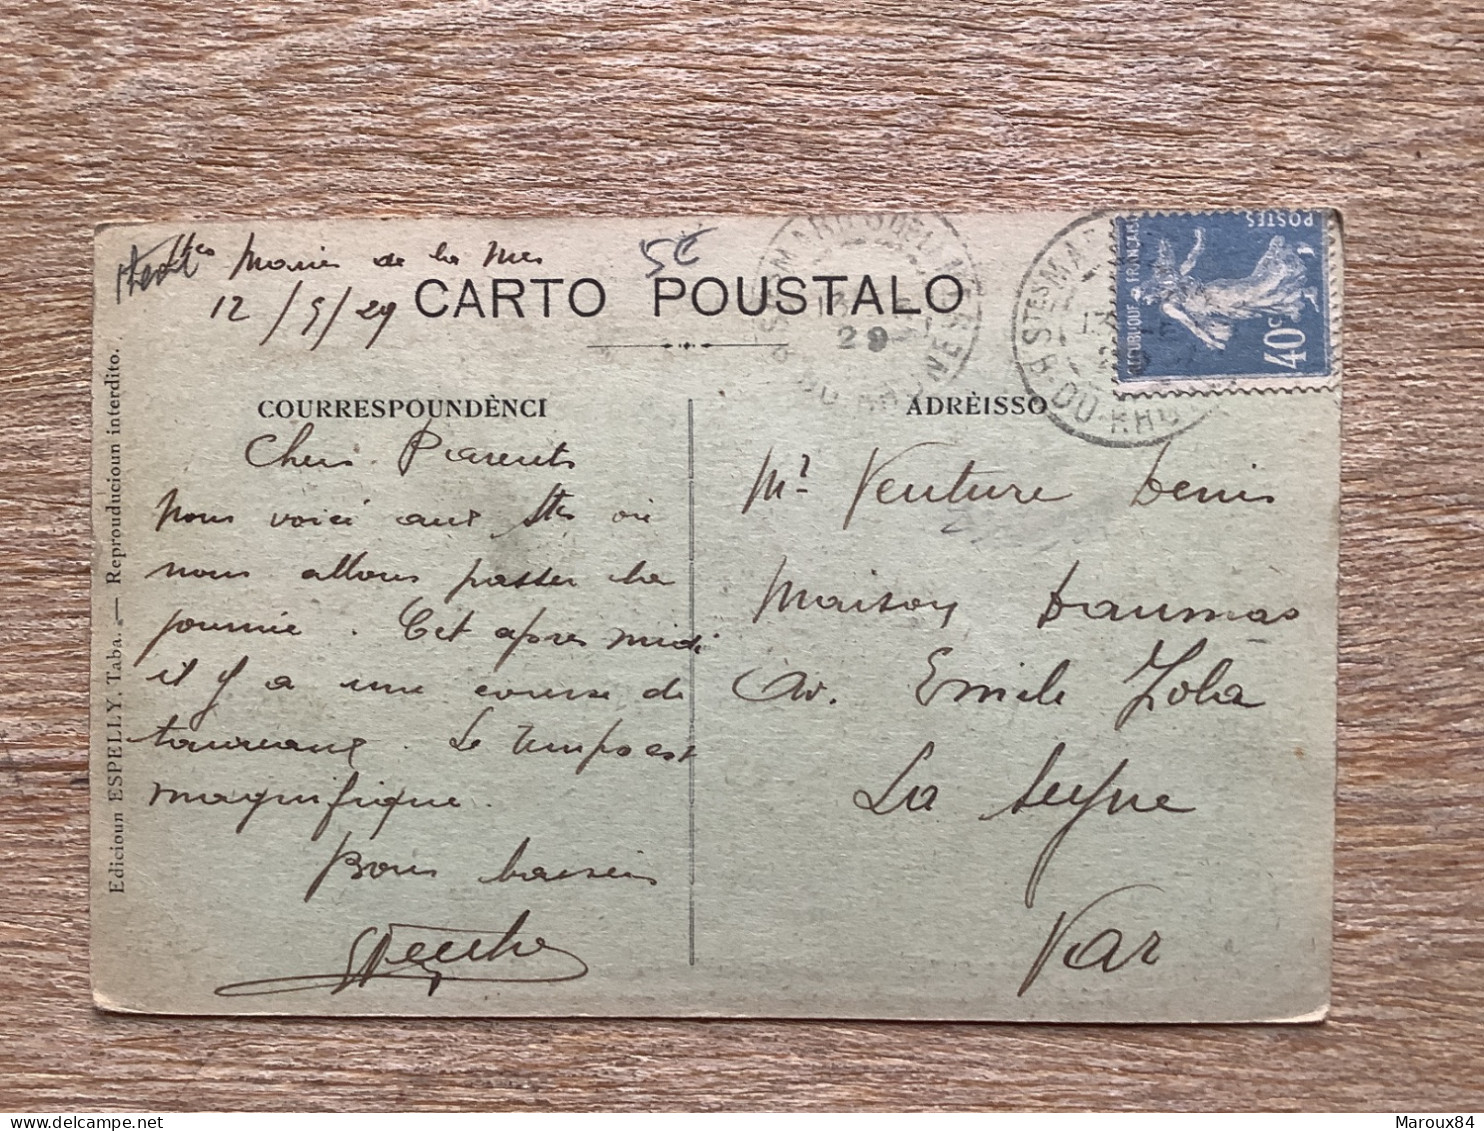 Stes Maries de la Mer
12/9/29
5€
CARTO POUSTALO
COURRESPOUNDÈNCI
ADRÈISSO
Chers Parents
Nous voici aux Stes où
nous allons passer la
journée. Cet après midi
il y a une course de
taureaux. Le temps est
magnifique.
Bons baisers
Mr Venture Denis
Maison Daumas
Av. Emile Zola
La Seyne
Var
Edicioun ESPELLY, Taba. — Reprouducioun interdito.
STES MARIES DE LA MER
13
29
B. DU RHONE
STES MAR
13
B. DU-RHO
REPUBLIQUE FRANÇAISE
POSTES
40c
Maroux84